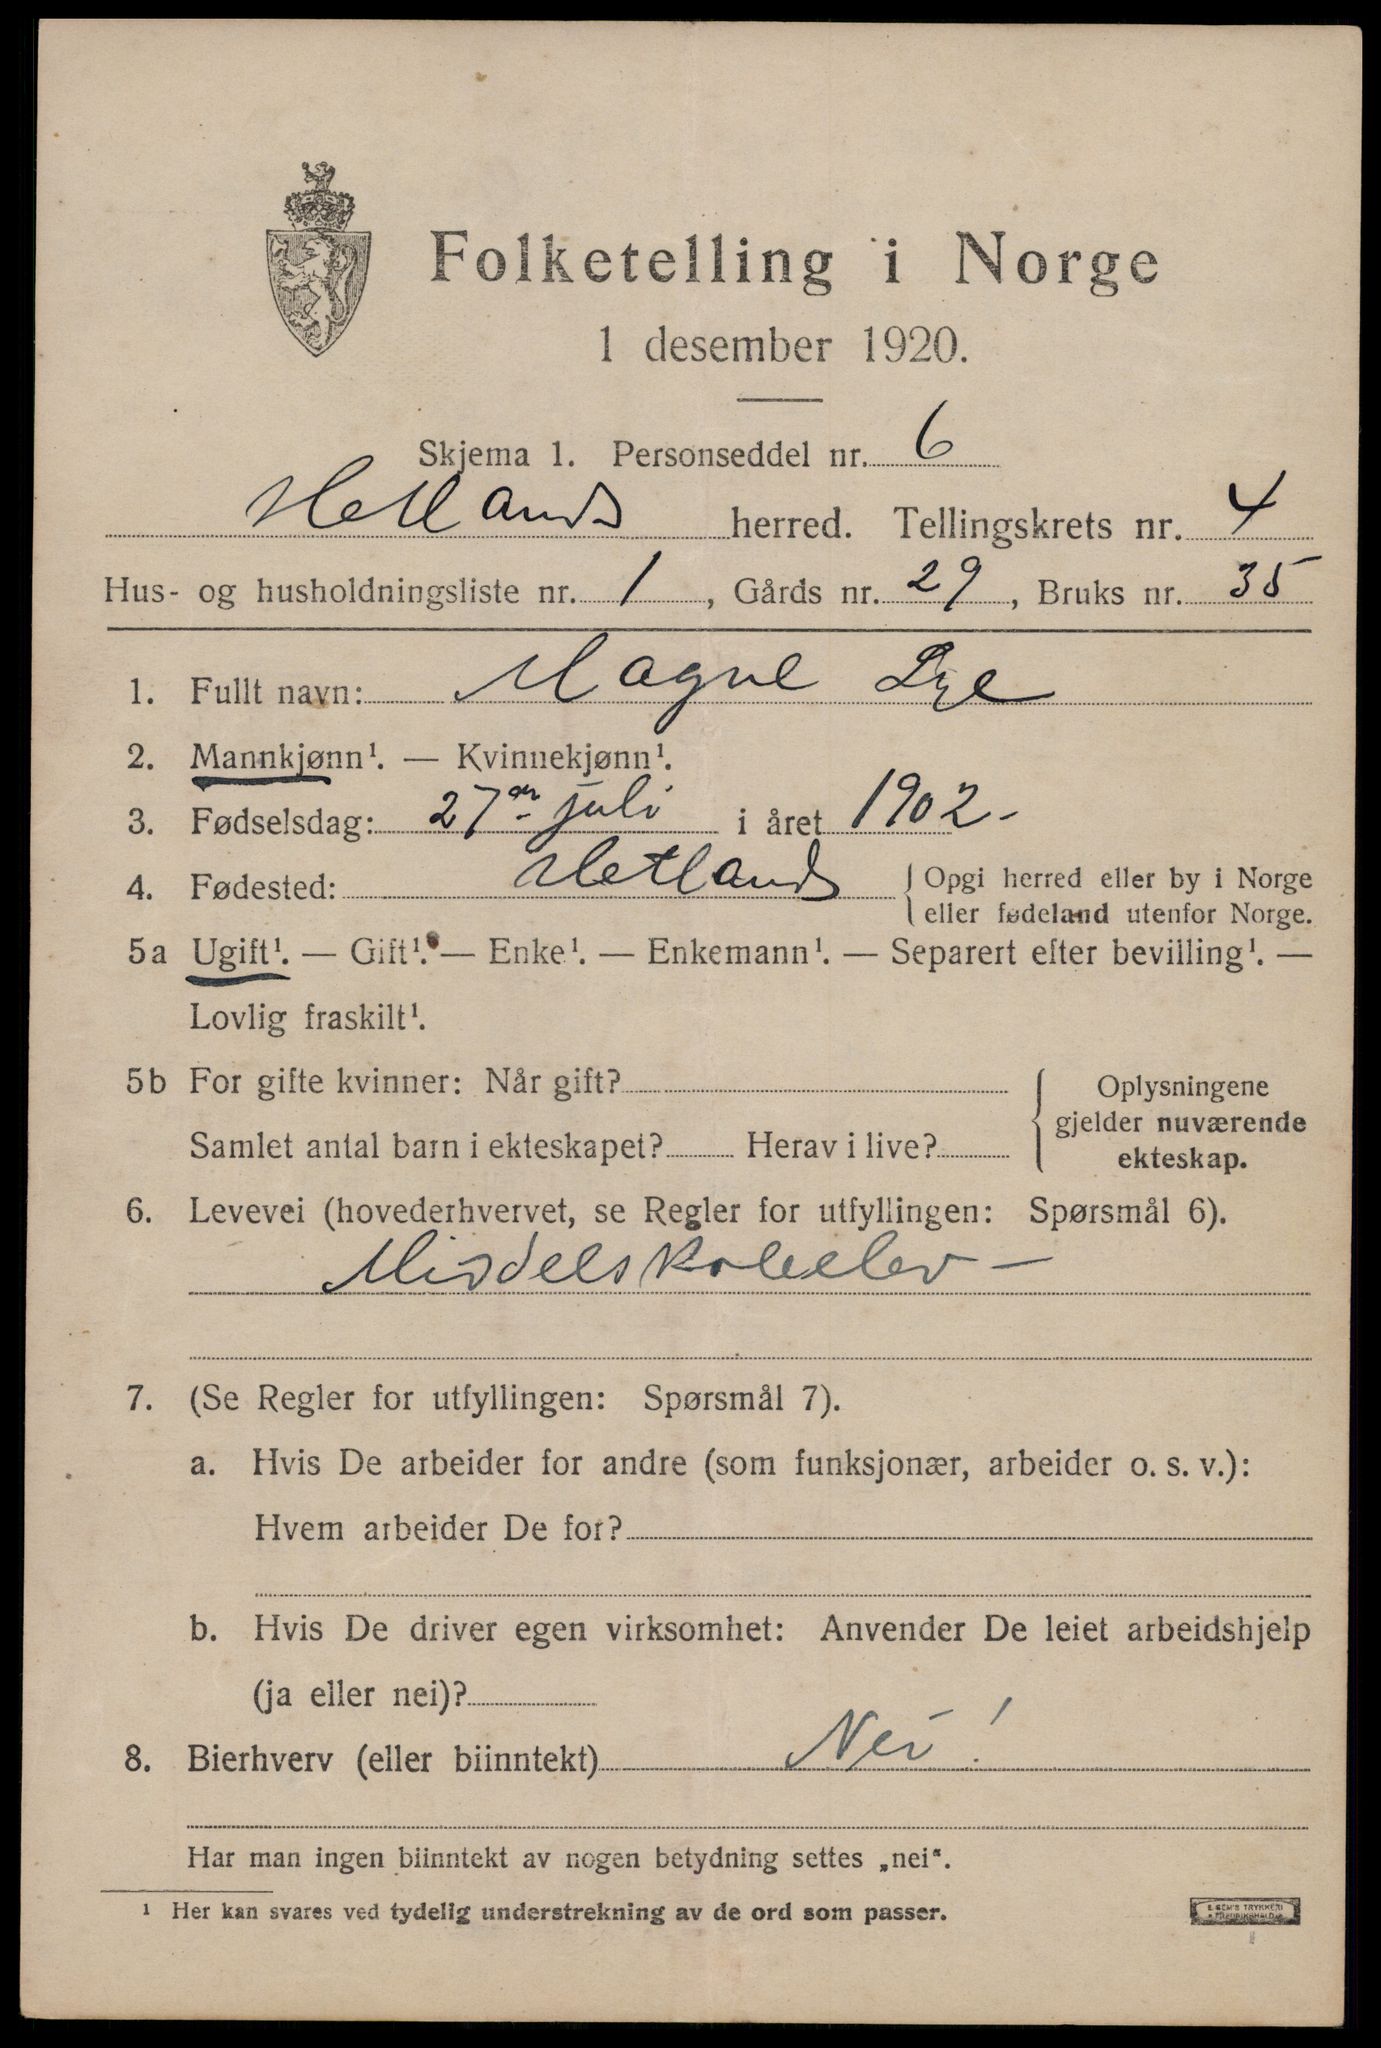 Folketelling i Norge
1 desember 1920.
Skjema 1. Personseddel nr. 6
Hetlands herred. Tellingskrets nr. 4
Hus- og husholdningsliste nr. 1, Gårds nr. 29, Bruks nr. 35
1. Fullt navn: Magne Lye
2. Mannkjønn¹. — Kvinnekjønn¹.
3. Fødselsdag: 27de juli i året 1902-
4. Fødested: Hetlands { Opgi herred eller by i Norge
eller fødeland utenfor Norge.
5a Ugift¹. — Gift¹. — Enke¹. — Enkemann¹. — Separert efter bevilling¹. —
Lovlig fraskilt¹.
5b For gifte kvinner: Når gift? { Oplysningene
gjelder nuværende
Samlet antal barn i ekteskapet? Herav i live? ekteskap.
6. Levevei (hovederhvervet, se Regler for utfyllingen: Spørsmål 6).
Middelskoleelev -
7. (Se Regler for utfyllingen: Spørsmål 7).
a. Hvis De arbeider for andre (som funksjonær, arbeider o. s. v.):
Hvem arbeider De for?
b. Hvis De driver egen virksomhet: Anvender De leiet arbeidshjelp
(ja eller nei)?
8. Bierhverv (eller biinntekt) Nei!
Har man ingen biinntekt av nogen betydning settes „nei“.
¹ Her kan svares ved tydelig understrekning av de ord som passer.
E. SEM'S TRYKKERI
FREDRIKSHALD